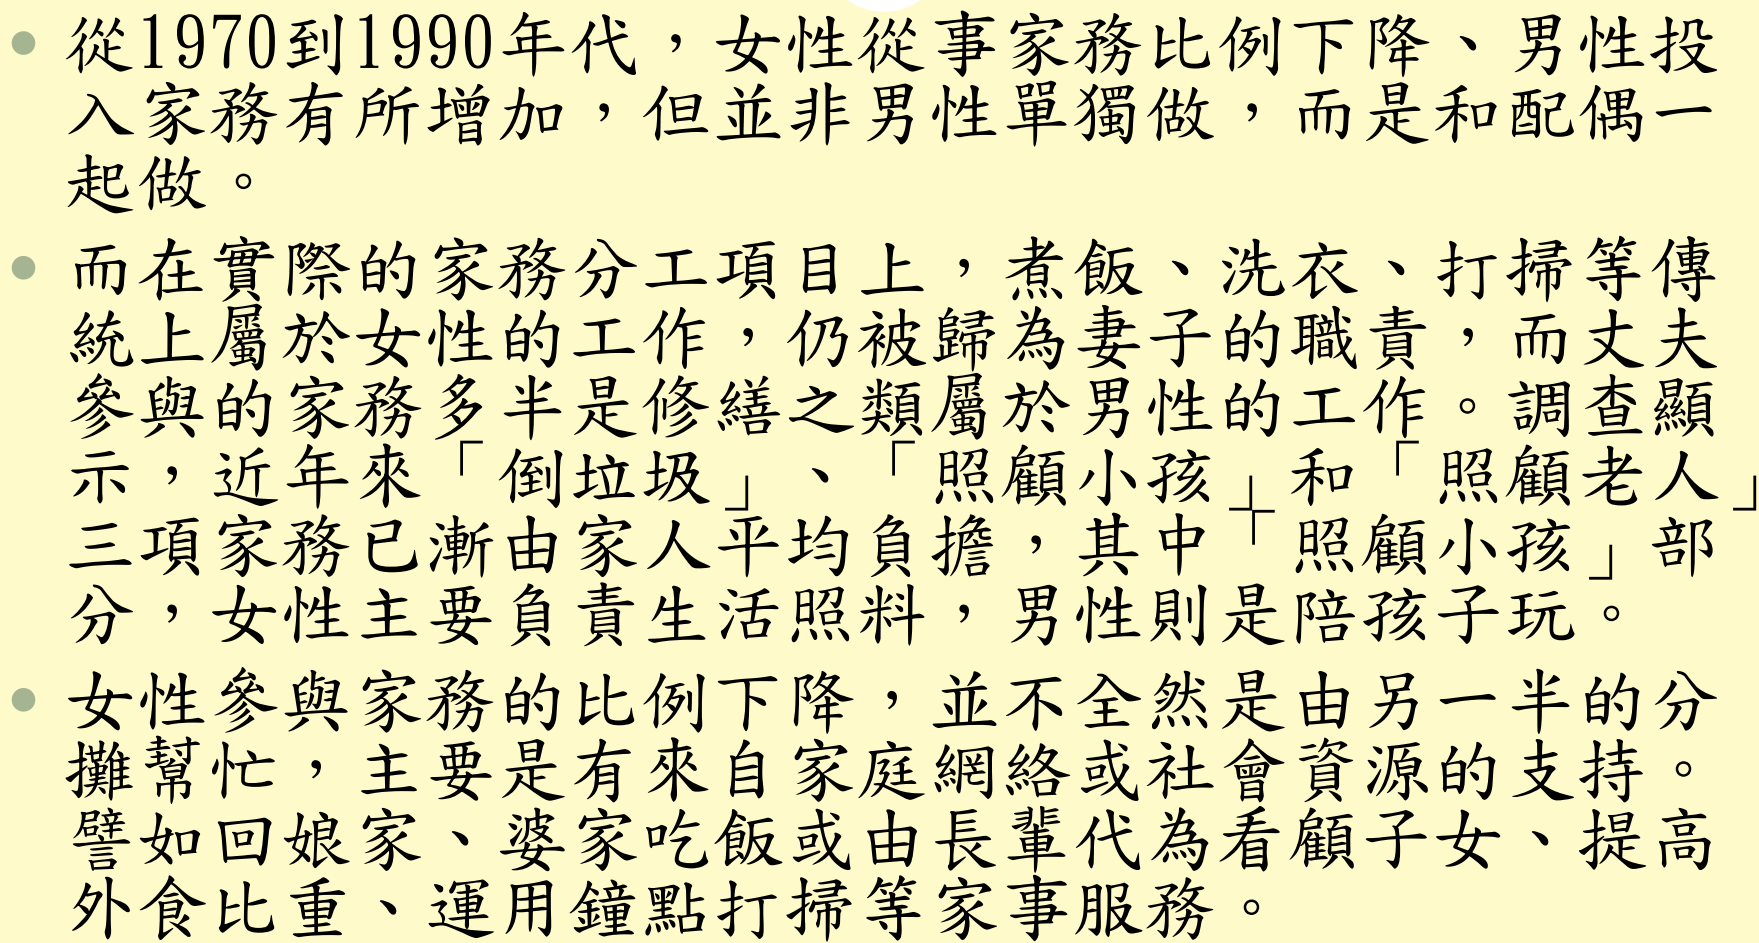 • 從1970到1990年代，女性從事家務比例下降、男性投
入家務有所增加，但並非男性單獨做，而是和配偶一
起做。
• 而在實際的家務分工項目上，煮飯、洗衣、打掃等傳
統上屬於女性的工作，仍被歸為妻子的職責，而丈夫
參與的家務多半是修繕之類屬於男性的工作。調查顯
示，近年來「倒垃圾」、「照顧小孩」和「照顧老人」
三項家務已漸由家人平均負擔，其中「照顧小孩」部
分，女性主要負責生活照料，男性則是陪孩子玩。
• 女性參與家務的比例下降，並不全然是由另一半的分
攤幫忙，主要是有來自家庭網絡或社會資源的支持。
譬如回娘家、婆家吃飯或由長輩代為看顧子女、提高
外食比重、運用鐘點打掃等家事服務。